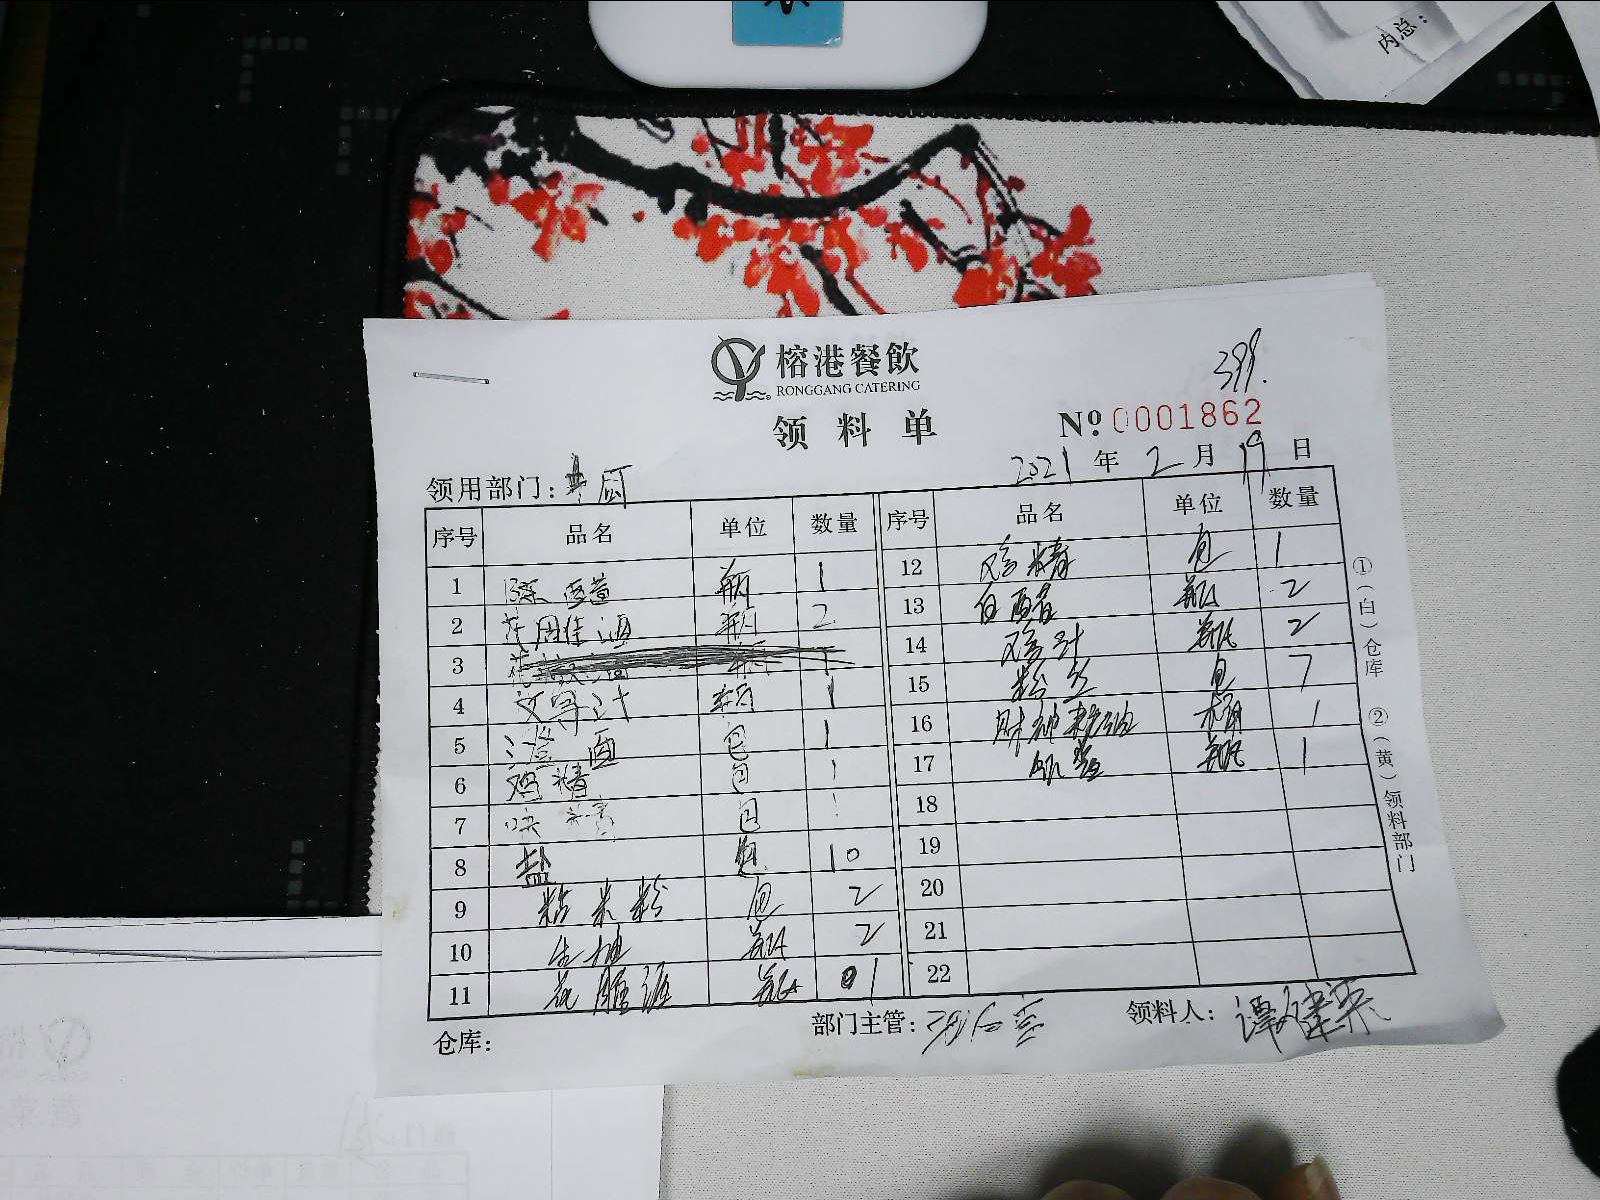 内总：
榕港餐飲
RONGGANG CATERING
399.
领料单
Nº 0001862
领用部门：
2021年2月19日
序号 品名 单位 数量 序号 品名 单位 数量
1 瓶 1
2 瓶 2
3
4 瓶 1
5 澄面 包 1
6 鸡精 包 1
7 包 1
8 盐 包 10
9 粘米粉 包 2
10 生抽 瓶 2
11 花雕酒 瓶 1
12 鸡精 包 1
13 白醋 瓶 2
14 鸡汁 瓶 2
15 粉丝 包 7
16 桶 1
17 瓶 1
18
19
20
21
22
①（白）仓库 ②（黄）领料部门
仓库：
部门主管：
领料人：谭健荣